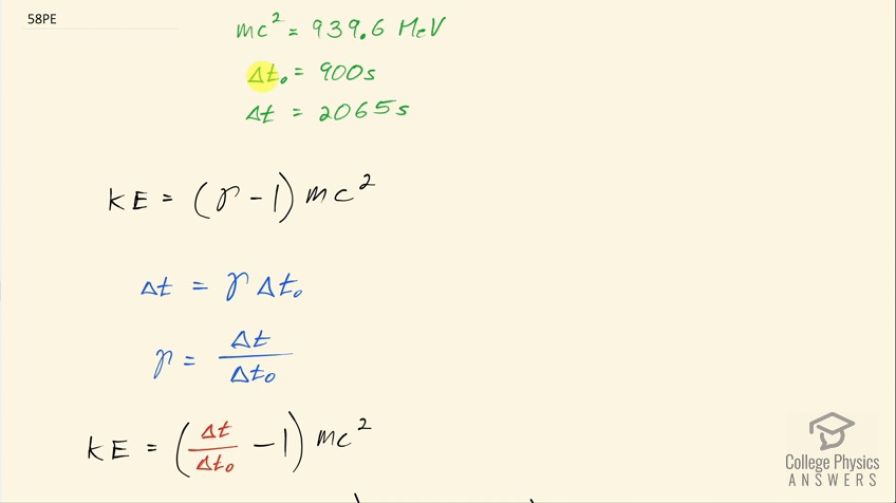 58PE
mc² = 939.6 MeV
Δt₀ = 900s
Δt = 2065s
KE = (γ - 1) mc²
Δt = γ Δt₀
γ = Δt / Δt₀
KE = (Δt / Δt₀ - 1) mc²
College Physics
ANSWERS